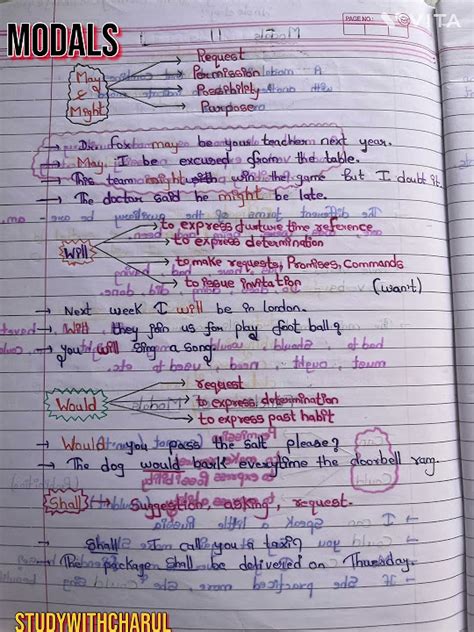 MODALS
PAGE NO:
VITA
May & Might
Request
Permission
Possibility
Purpose
→ Dr. fox may be your teacher next year.
→ May, I be excused from the table.
→ This team might win the game but I doubt it.
→ The doctor said he might be late.
Will
to express furture time reference
to express determination
to make requests, Promises, Commands
to issue invitation
(won't)
→ Next week I will be in london.
→ Will they join us for play foot ball?
→ You will sing a song
Would
request
to express determination
to express past habit
→ Would you pass the salt please?
→ The dog would bark everytime the doorbell rang.
Shall → Suggestion asking, request.
→ Shall I call you a taxi?
→ The package shall be delivered on Thursday.
STUDYWITHCHARUL